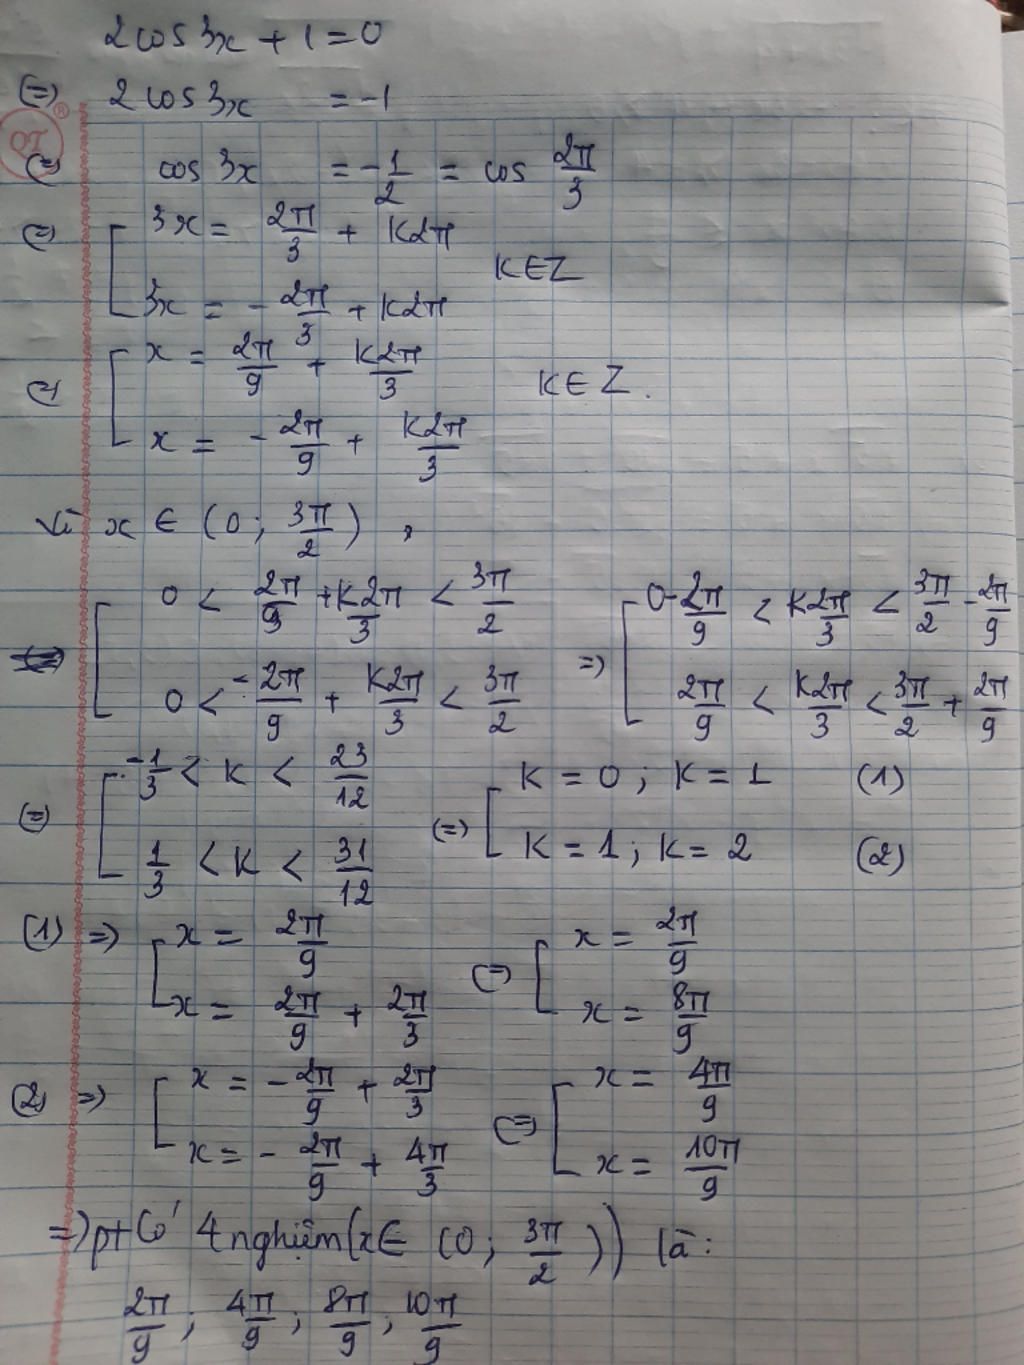 2cos3x + 1 = 0
(=) 2cos3x = -1
(=) cos3x = -1/2 = cos 2π/3
(=) [ 3x = 2π/3 + K2π
3x = - 2π/3 + K2π K∈Z
(=) [ x = 2π/9 + K2π/3
x = - 2π/9 + K2π/3 K∈Z.
Vì x ∈ (0; 3π/2),
[ 0 < 2π/9 + K2π/3 < 3π/2 =) [ 0 - 2π/9 < K2π/3 < 3π/2 - 2π/9
0 < - 2π/9 + K2π/3 < 3π/2 2π/9 < K2π/3 < 3π/2 + 2π/9
(=) [ -1/3 < K < 23/12 (=) [ K = 0; K = 1 (1)
1/3 < K < 31/12 K = 1; K = 2 (2)
(1) =) [ x = 2π/9 (=) [ x = 2π/9
x = 2π/9 + 2π/3 x = 8π/9
(2) =) [ x = - 2π/9 + 2π/3 (=) [ x = 4π/9
x = - 2π/9 + 4π/3 x = 10π/9
=) pt có 4 nghiệm (x∈ (0; 3π/2)) là:
2π/9; 4π/9; 8π/9; 10π/9